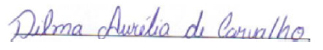 Delma Aurélia de Carvalho